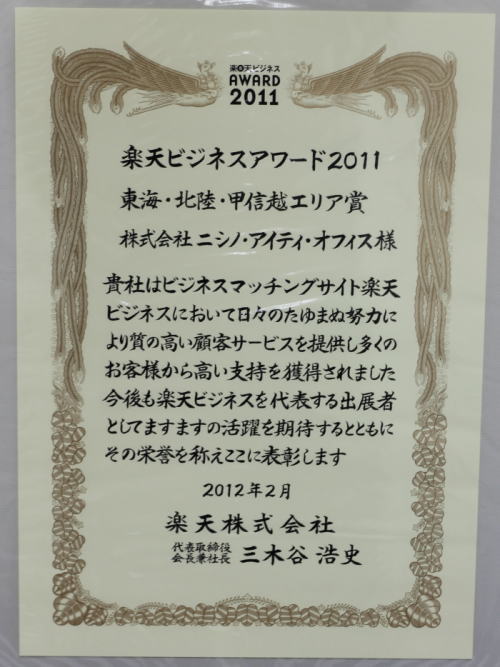 楽天ビジネス
AWARD
2011
楽天ビジネスアワード2011
東海・北陸・甲信越エリア賞
株式会社ニシノ・アイティ・オフィス様
貴社はビジネスマッチングサイト楽天
ビジネスにおいて日々のたゆまぬ努力に
より質の高い顧客サービスを提供し多くの
お客様から高い支持を獲得されました
今後も楽天ビジネスを代表する出展者
としてますますの活躍を期待するとともに
その栄誉を称えここに表彰します
2012年2月
楽天株式会社
代表取締役
会長兼社長 三木谷 浩史